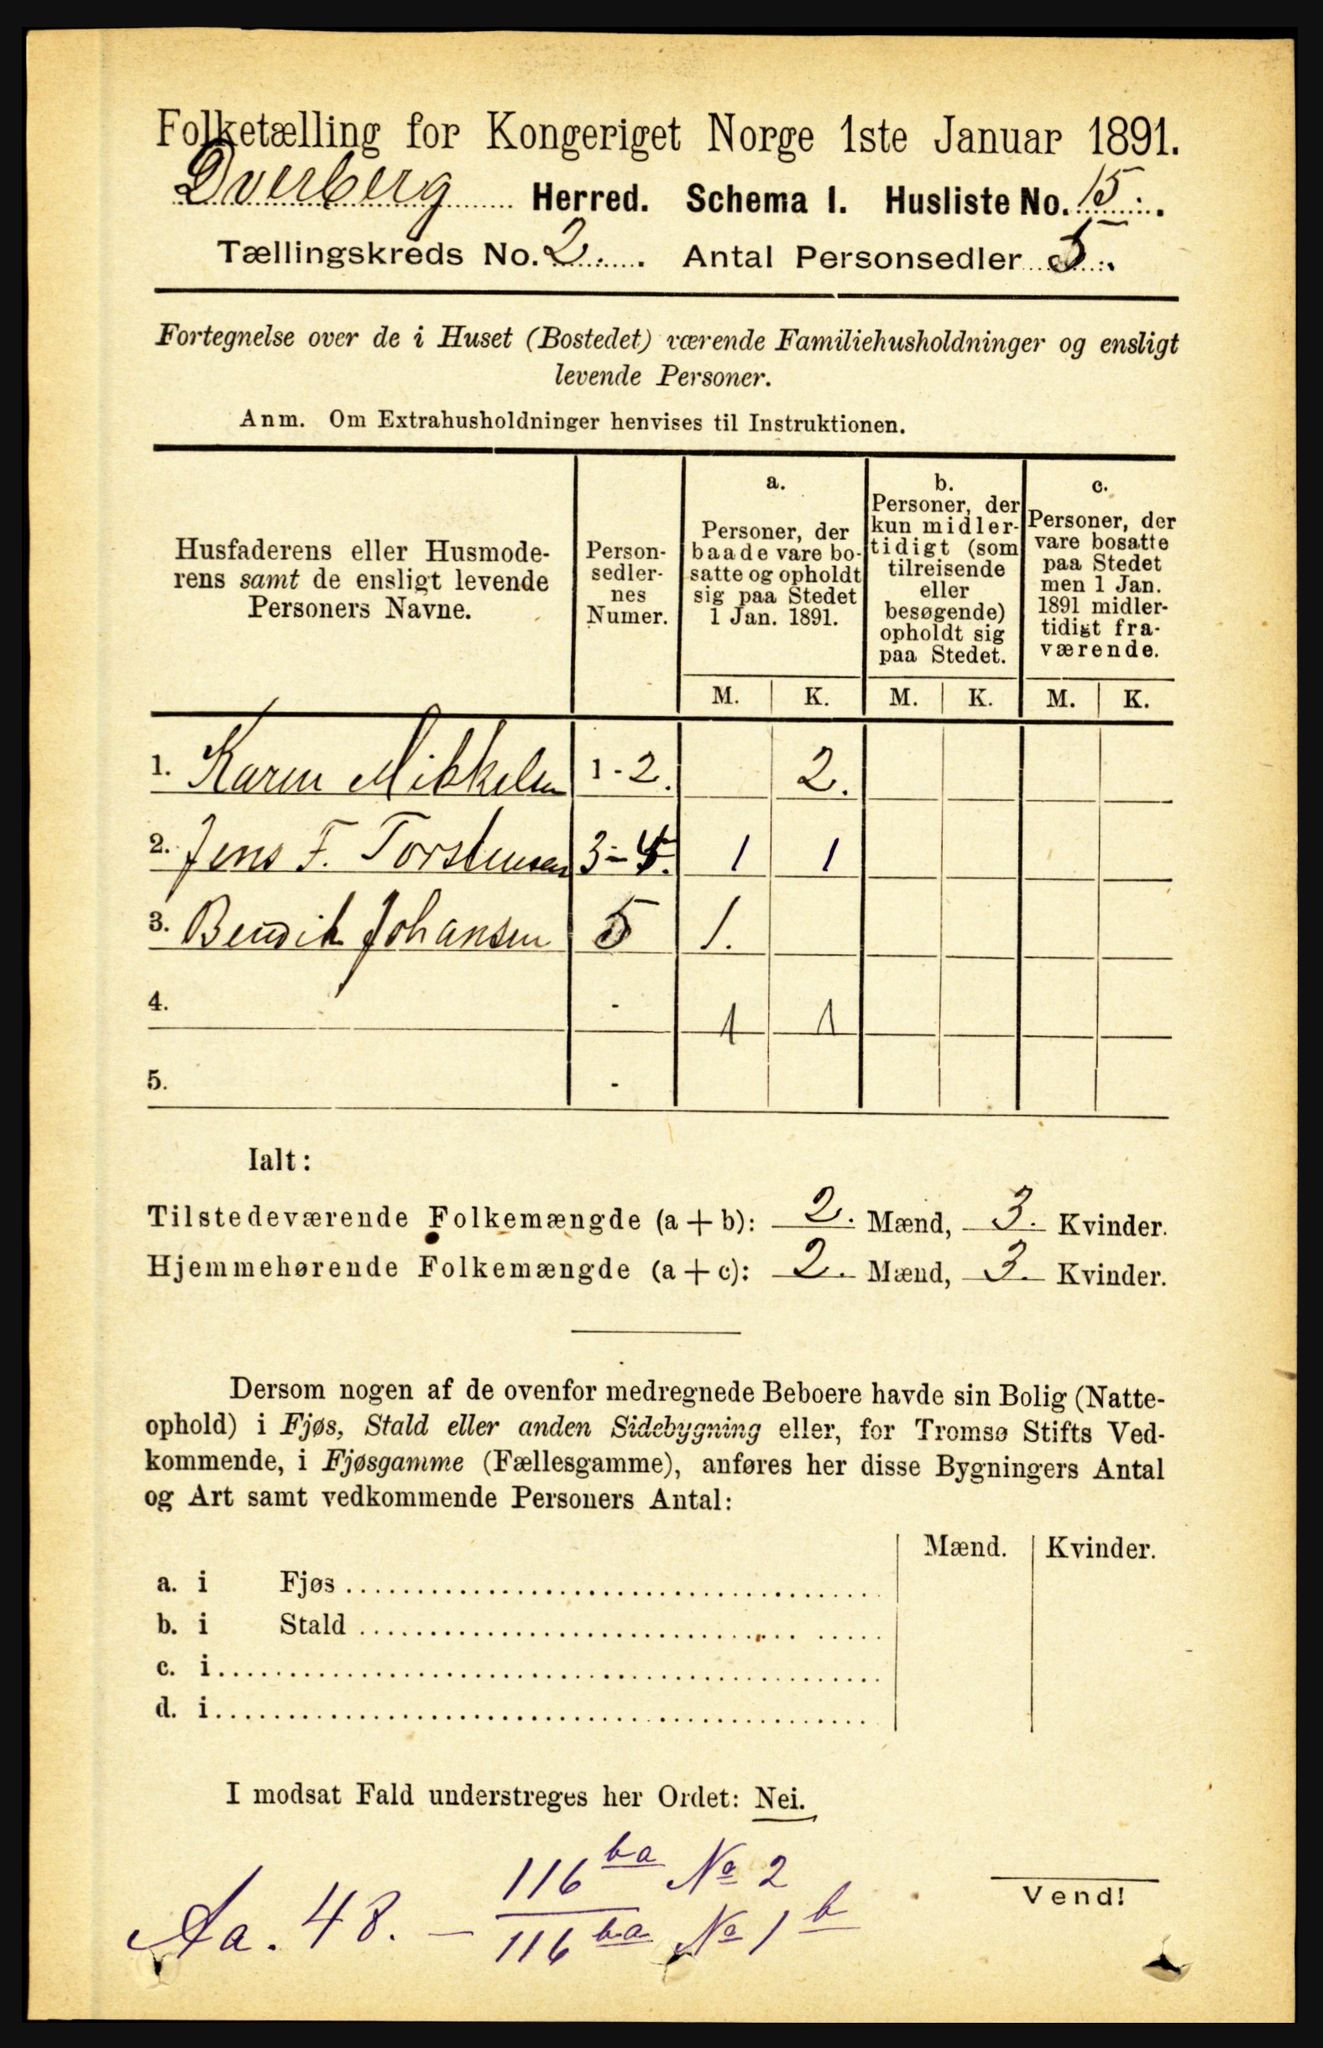 Folketælling for Kongeriget Norge 1ste Januar 1891.
Dverberg Herred. Schema I. Husliste No. 15.
Tællingskreds No. 2. Antal Personsedler 5.
Fortegnelse over de i Huset (Bostedet) værende Familiehusholdninger og ensligt
levende Personer.
Anm. Om Extrahusholdninger henvises til Instruktionen.
Husfaderens eller Husmode-
rens samt de ensligt levende
Personers Navne.
Person-
sedler-
nes
Numer.
a.
Personer, der
baade vare bo-
satte og opholdt
sig paa Stedet
1 Jan. 1891.
b.
Personer, der
kun midler-
tidigt (som
tilreisende
eller
besøgende)
opholdt sig
paa Stedet.
c.
Personer, der
vare bosatte
paa Stedet
men 1 Jan.
1891 midler-
tidigt fra-
værende.
M. K. M. K. M. K.
1. Karen Mikkelsen 1-2. 2.
2. Jens F. Torstensen 3-4. 1 1
3. Bendik Johansen 5 1.
4. - 1 1
5. -
Ialt:
Tilstedeværende Folkemængde (a+b): 2. Mænd, 3. Kvinder.
Hjemmehørende Folkemængde (a+c): 2. Mænd, 3. Kvinder.
Dersom nogen af de ovenfor medregnede Beboere havde sin Bolig (Natte-
ophold) i Fjøs, Stald eller anden Sidebygning eller, for Tromsø Stifts Ved-
kommende, i Fjøsgamme (Fællesgamme), anføres her disse Bygningers Antal
og Art samt vedkommende Personers Antal:
Mænd. Kvinder.
a. i Fjøs
b. i Stald
c. i
d. i
I modsat Fald understreges her Ordet: Nei.
116 ba No 2
Aa. 48. — 116 ba No 1 b
Vend!